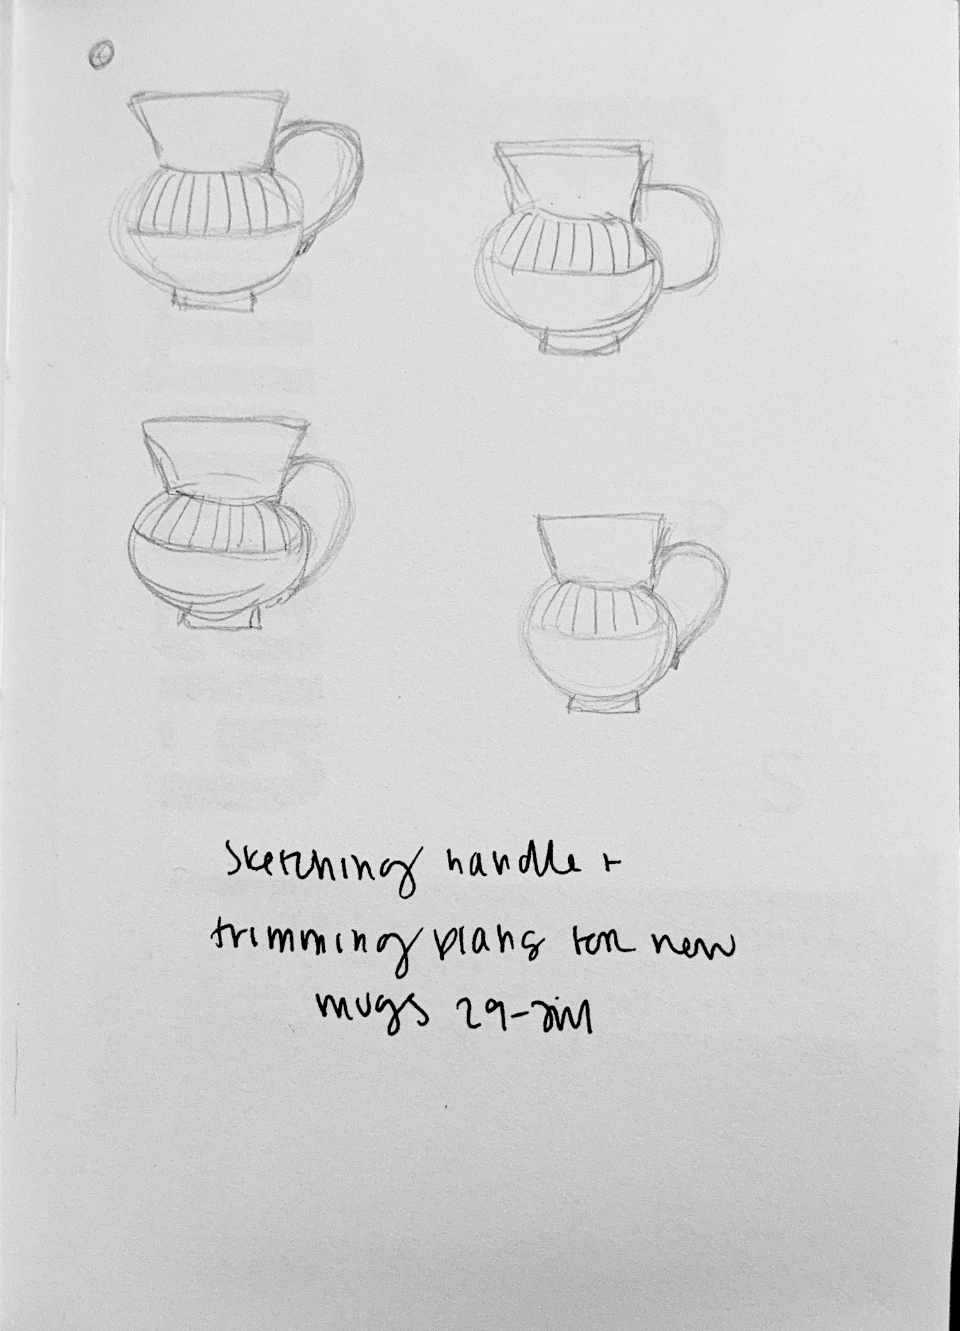 sketching handle +
trimming plans for new
mugs 29-Jul